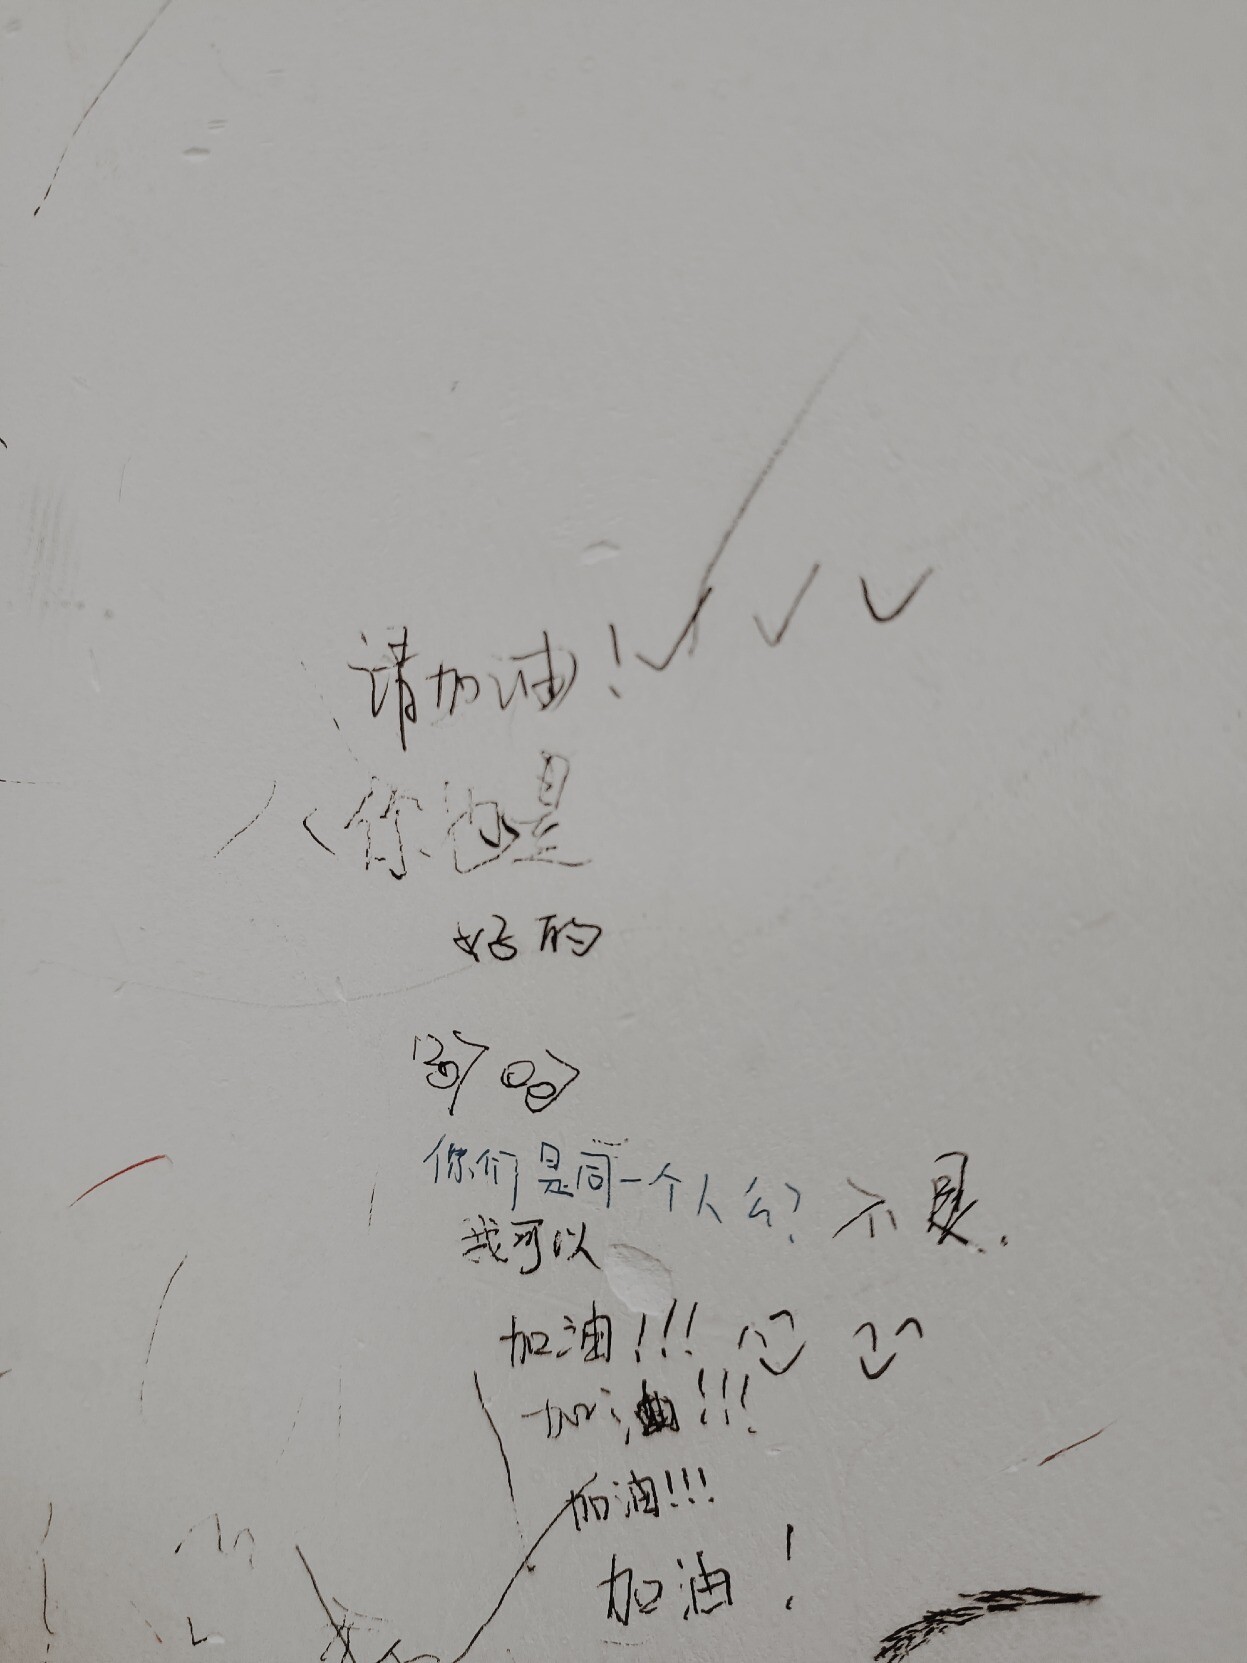 请加油!
你也是
好的
你们是同一个人么? 不是.
我可以
加油!!!
加油!!!
加油!!!
加油!